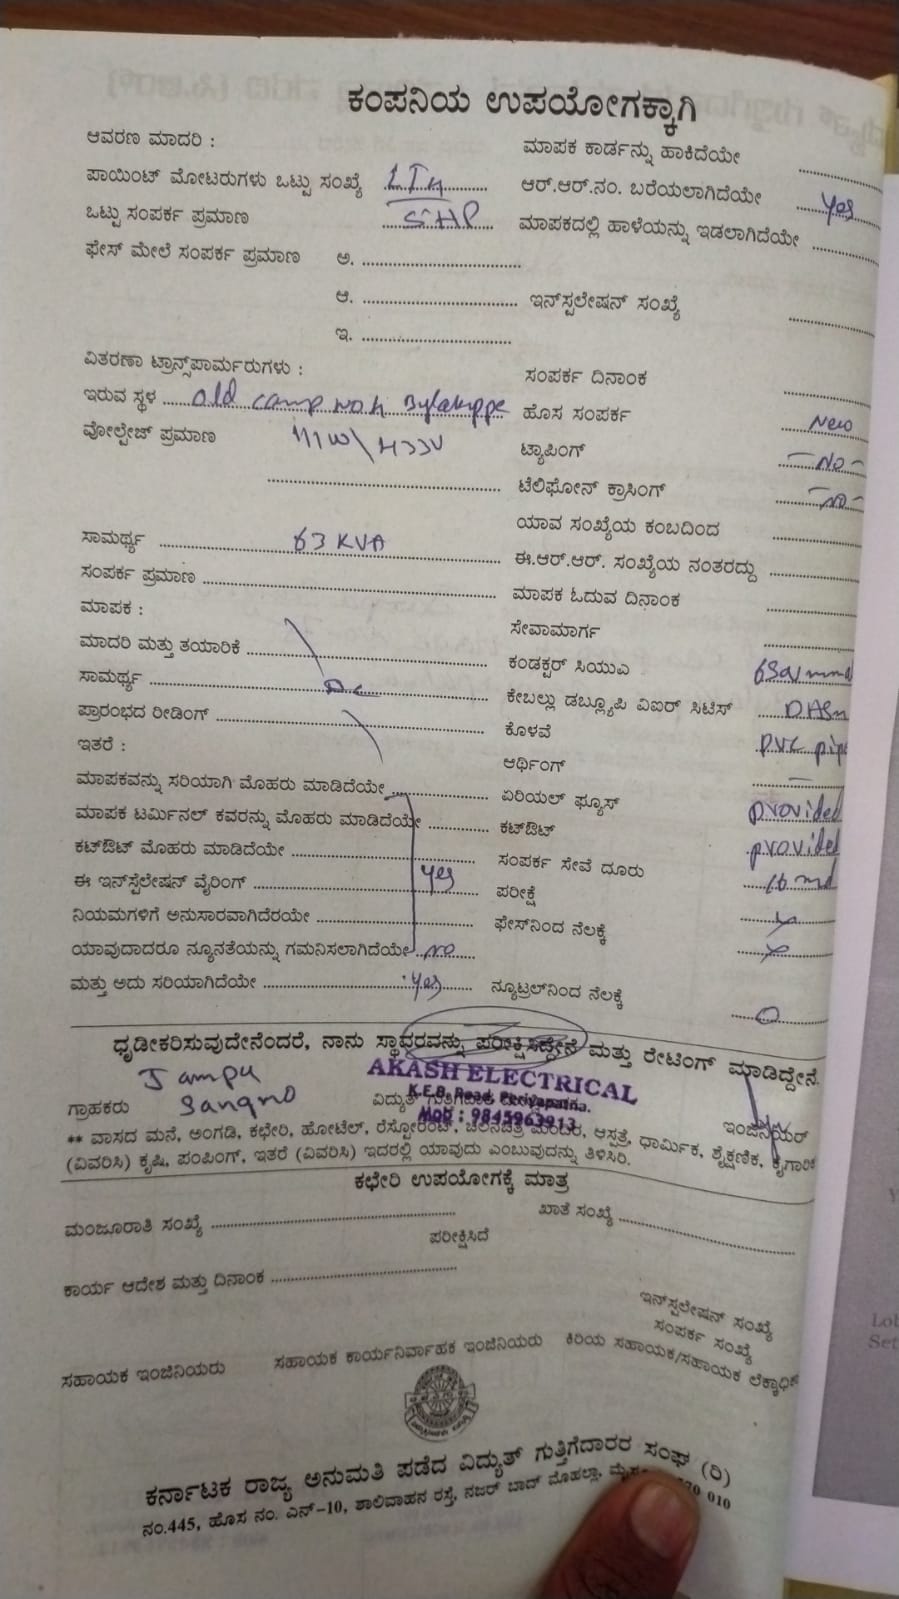 ಕಂಪನಿಯ ಉಪಯೋಗಕ್ಕಾಗಿ
ಆವರಣ ಮಾದರಿ :
ಪಾಯಿಂಟ್ ಮೋಟರುಗಳು ಒಟ್ಟು ಸಂಖ್ಯೆ
ಒಟ್ಟು ಸಂಪರ್ಕ ಪ್ರಮಾಣ 5HP
ಫೇಸ್ ಮೇಲೆ ಸಂಪರ್ಕ ಪ್ರಮಾಣ ಅ.
ಆ.
ಇ.
ವಿತರಣಾ ಟ್ರಾನ್ಸ್‌ಪಾರ್ಮರುಗಳು :
ಇರುವ ಸ್ಥಳ old camp no 4 Bylakuppe
ವೋಲ್ಟೇಜ್ ಪ್ರಮಾಣ
ಸಾಮರ್ಥ್ಯ 63 KVA
ಸಂಪರ್ಕ ಪ್ರಮಾಣ
ಮಾಪಕ :
ಮಾದರಿ ಮತ್ತು ತಯಾರಿಕೆ
ಸಾಮರ್ಥ್ಯ
ಪ್ರಾರಂಭದ ರೀಡಿಂಗ್
ಇತರೆ :
ಮಾಪಕವನ್ನು ಸರಿಯಾಗಿ ಮೊಹರು ಮಾಡಿದೆಯೇ
ಮಾಪಕ ಟರ್ಮಿನಲ್ ಕವರನ್ನು ಮೊಹರು ಮಾಡಿದೆಯೇ
ಕಟ್‌ಔಟ್ ಮೊಹರು ಮಾಡಿದೆಯೇ
ಈ ಇನ್‌ಸ್ಟೆಲೇಷನ್ ವೈರಿಂಗ್ yes
ನಿಯಮಗಳಿಗೆ ಅನುಸಾರವಾಗಿದೆರಯೇ
ಯಾವುದಾದರೂ ನ್ಯೂನತೆಯನ್ನು ಗಮನಿಸಲಾಗಿದೆಯೇ no
ಮತ್ತು ಅದು ಸರಿಯಾಗಿದೆಯೇ yes
ಮಾಪಕ ಕಾರ್ಡನ್ನು ಹಾಕಿದೆಯೇ
ಆರ್.ಆರ್.ನಂ. ಬರೆಯಲಾಗಿದೆಯೇ yes
ಮಾಪಕದಲ್ಲಿ ಹಾಳೆಯನ್ನು ಇಡಲಾಗಿದೆಯೇ
ಇನ್‌ಸ್ಟಲೇಷನ್ ಸಂಖ್ಯೆ
ಸಂಪರ್ಕ ದಿನಾಂಕ
ಹೊಸ ಸಂಪರ್ಕ New
ಟ್ಯಾಪಿಂಗ್ -NO-
ಟೆಲಿಫೋನ್ ಕ್ರಾಸಿಂಗ್ -NO-
ಯಾವ ಸಂಖ್ಯೆಯ ಕಂಬದಿಂದ
ಈ.ಆರ್.ಆರ್. ಸಂಖ್ಯೆಯ ನಂತರದ್ದು
ಮಾಪಕ ಓದುವ ದಿನಾಂಕ
ಸೇವಾಮಾರ್ಗ
ಕಂಡಕ್ಟರ್ ಸಿಯುಎ
ಕೇಬಲ್ಲು ಡಬ್ಲ್ಯೂಪಿ ವಿಐರ್ ಸಿಟಿಸ್
ಕೊಳವೆ PVC pipe
ಆರ್ಥಿಂಗ್
ಏರಿಯಲ್ ಫ್ಯೂಸ್ provided
ಕಟ್‌ಔಟ್ provided
ಸಂಪರ್ಕ ಸೇವೆ ದೂರು
ಪರೀಕ್ಷೆ
ಫೇಸ್‌ನಿಂದ ನೆಲಕ್ಕೆ
ನ್ಯೂಟ್ರಲ್‌ನಿಂದ ನೆಲಕ್ಕೆ
ಧೃಡೀಕರಿಸುವುದೇನೆಂದರೆ, ನಾನು ಸ್ಥಾವರವನ್ನು ಪರೀಕ್ಷಿಸಿದ್ದೇನೆ ಮತ್ತು ರೇಟಿಂಗ್ ಮಾಡಿದ್ದೇನೆ.
AKASH ELECTRICAL
K.E.B. Road, Periyapatna.
Mob : 9845963913
Jampa
Sangno
ಗ್ರಾಹಕರು ವಿದ್ಯುತ್ ಇಂಜಿನಿಯರ್
** ವಾಸದ ಮನೆ, ಅಂಗಡಿ, ಕಛೇರಿ, ಹೋಟೆಲ್, ರೆಸ್ಟೋರೆಂಟ್, ಚಲನಚಿತ್ರ ಮಂದಿರ, ಆಸ್ಪತ್ರೆ, ಧಾರ್ಮಿಕ, ಶೈಕ್ಷಣಿಕ,
(ವಿವರಿಸಿ) ಕೃಷಿ, ಪಂಪಿಂಗ್, ಇತರೆ (ವಿವರಿಸಿ) ಇದರಲ್ಲಿ ಯಾವುದು ಎಂಬುವುದನ್ನು ತಿಳಿಸಿರಿ.
ಕಛೇರಿ ಉಪಯೋಗಕ್ಕೆ ಮಾತ್ರ
ಮಂಜೂರಾತಿ ಸಂಖ್ಯೆ ಖಾತೆ ಸಂಖ್ಯೆ
ಪರೀಕ್ಷಿಸಿದೆ
ಕಾರ್ಯ ಆದೇಶ ಮತ್ತು ದಿನಾಂಕ
ಇನ್‌ಸ್ಟಲೇಷನ್ ಸಂಖ್ಯೆ
ಸಂಪರ್ಕ ಸಂಖ್ಯೆ
ಸಹಾಯಕ ಇಂಜಿನಿಯರು ಸಹಾಯಕ ಕಾರ್ಯನಿರ್ವಾಹಕ ಇಂಜಿನಿಯರು ಕಿರಿಯ ಸಹಾಯಕ/ಸಹಾಯಕ
ಕರ್ನಾಟಕ ರಾಜ್ಯ ಅನುಮತಿ ಪಡೆದ ವಿದ್ಯುತ್ ಗುತ್ತಿಗೆದಾರರ ಸಂಘ (ರಿ)
ನಂ.445, ಹೊಸ ನಂ. ಎನ್-10, ಶಾಲಿವಾಹನ ರಸ್ತೆ, ನಜರ್ ಬಾದ್ ಮೊಹಲ್ಲಾ, 010